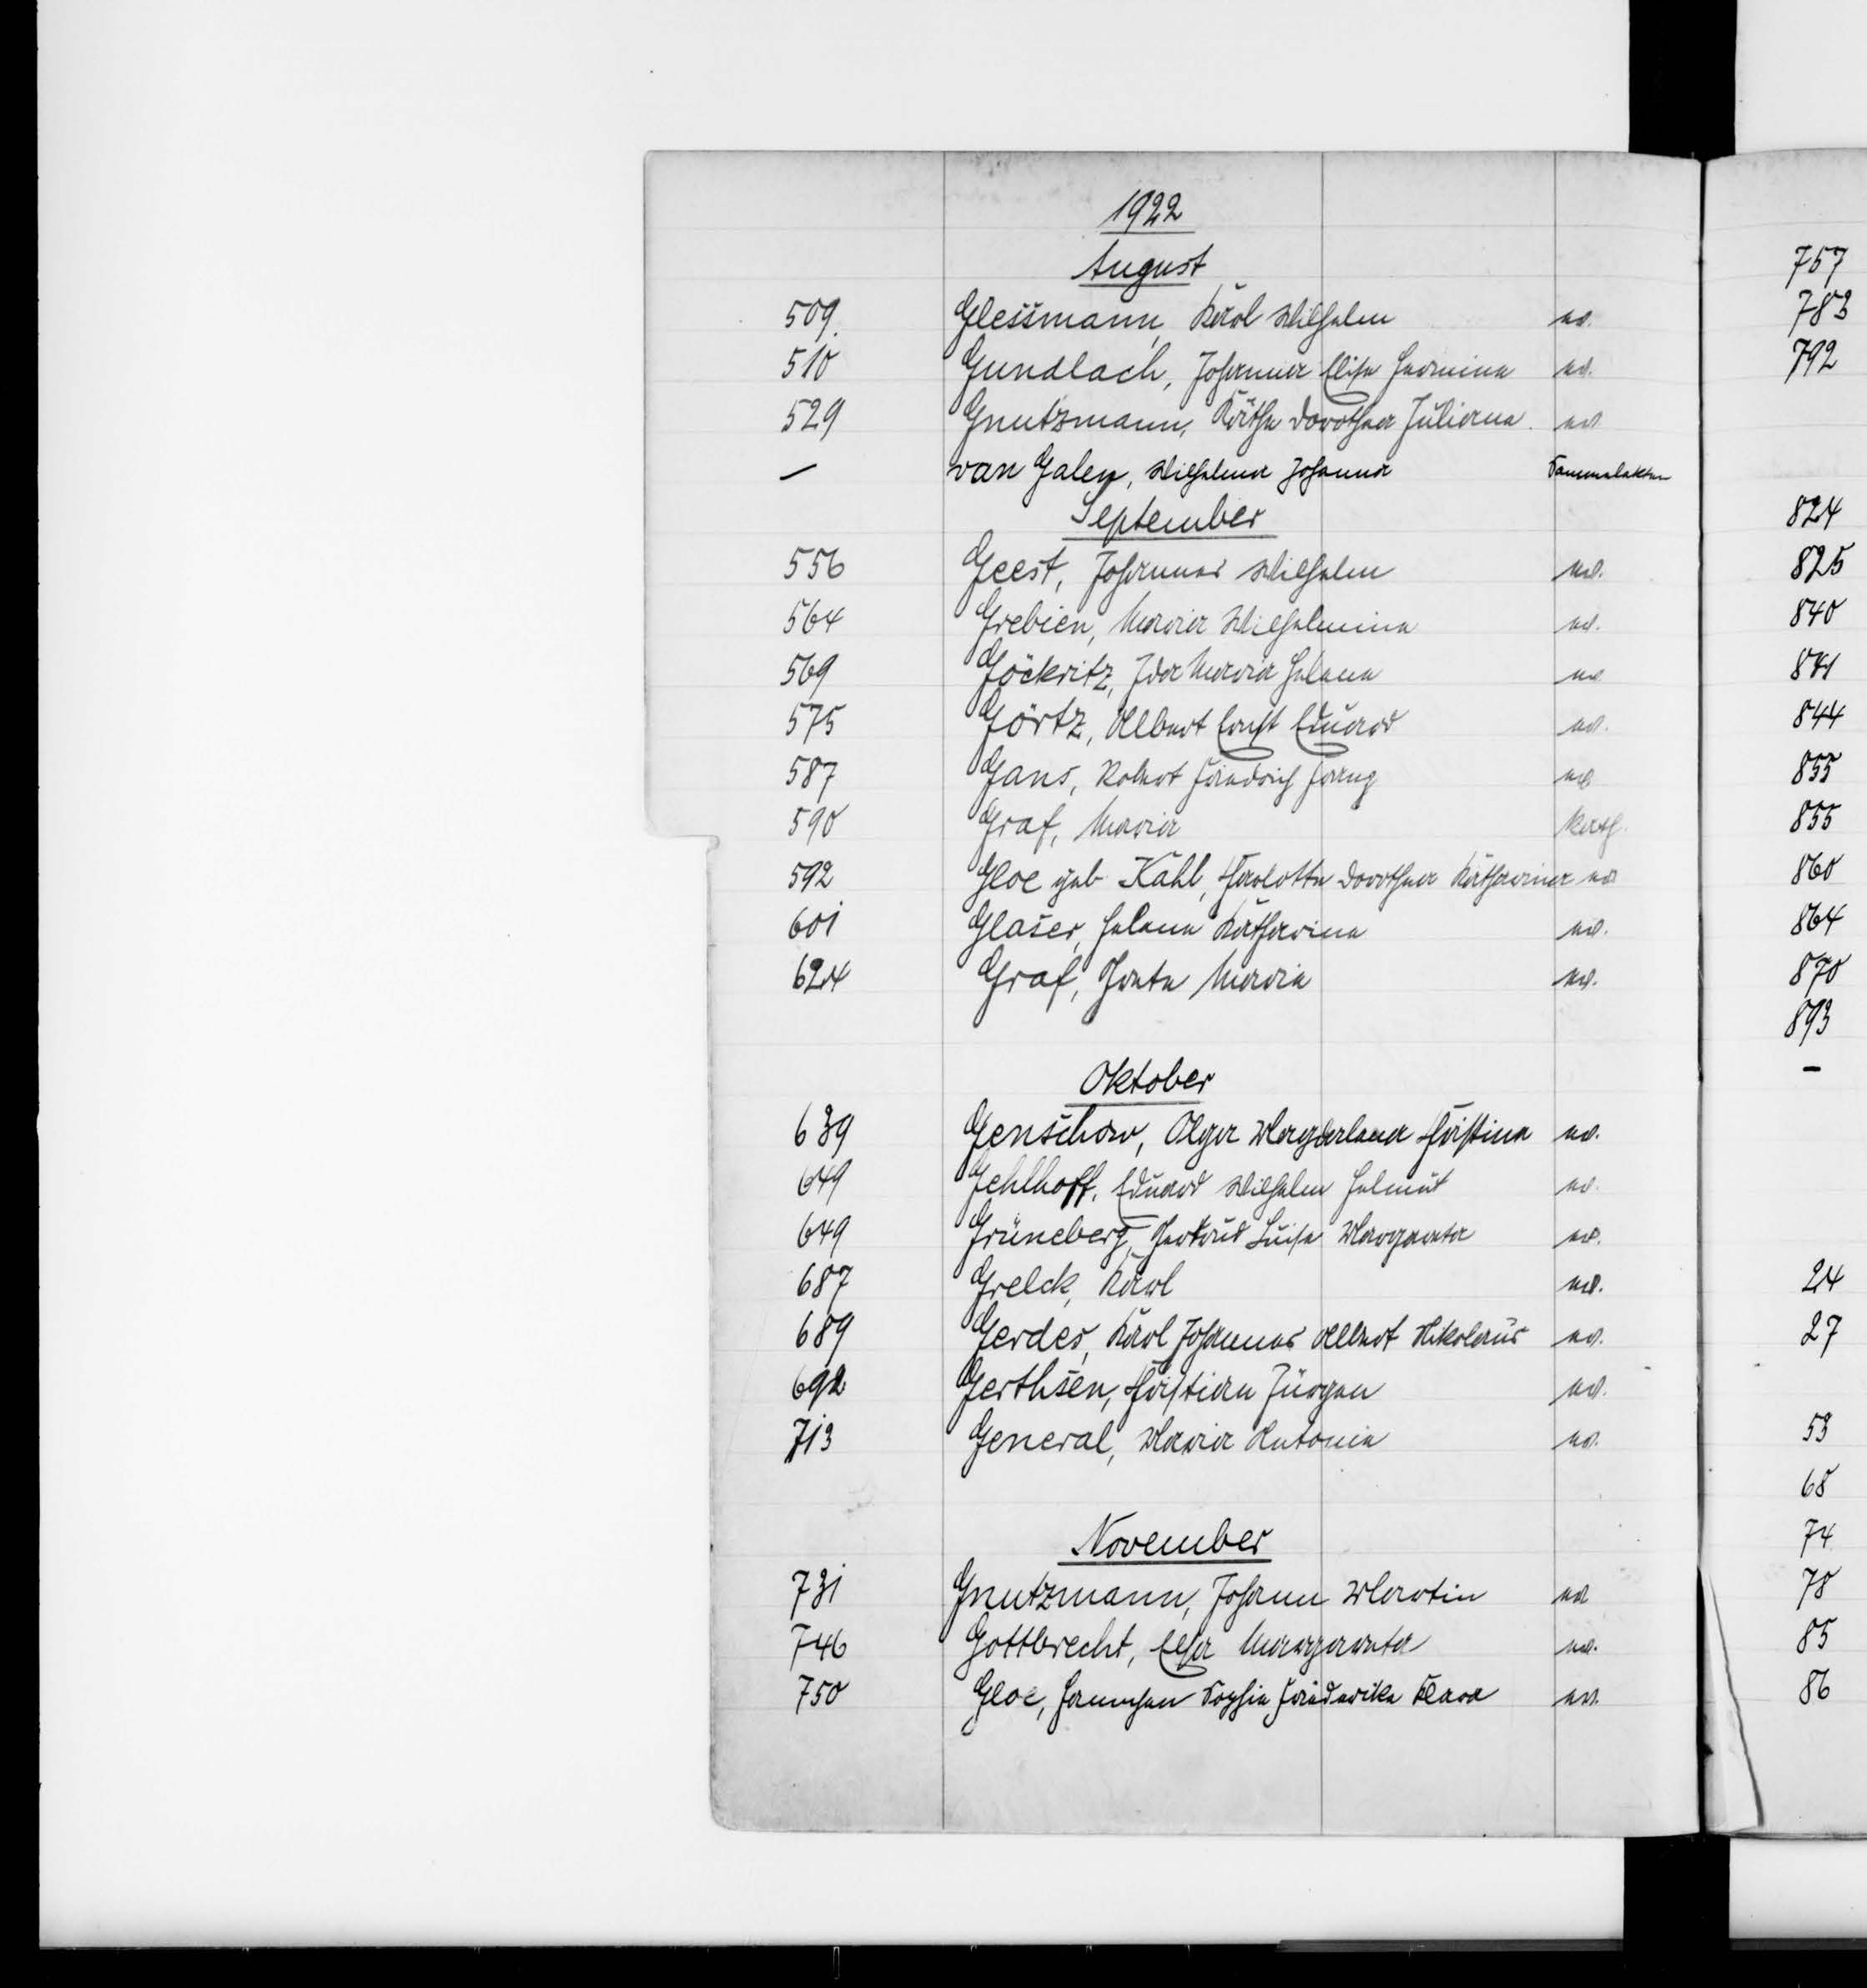 1922
August
509. Glessmann, Karl Wilhelm ev.
510 Gundlach, Johanna Elise Hermine ev.
529 Gnutzmann, Käthe Dorothea Juliane ev.
— van Galen, Wilhelma Johanna Sammelakten
September
556 Geest, Johannes Wilhelm ev.
564 Grebien, Maria Wilhelmine ev.
569 Göckritz, Ida Maria Helene ev.
575 Görtz, Albert Ernst Eduard ev.
587 Gans, Robert Friedrich Franz ev.
590 Graf, Maria kath.
592 Gloe geb. Kähl, Charlotte Dorothea Katharina ev.
601 Glaser, Helene Katharina ev.
624 Graf, Grete Marie ev.
Oktober
639 Genschow, Olga Magdalena Christine ev.
649 Gehlhoff, Eduard Wilhelm Helmut ev.
649 Grüneberg, Gertrud Luise Margareta ev.
687 Grelck, Karl ev.
689 Gerdes, Karl Johannes Albert Nikolaus ev.
692 Gerthsen, Christian Jürgen ev.
713 General, Maria Antonie ev.
November
731 Gnutzmann, Johann Martin ev.
746 Gottbrecht, Elsa Margareta ev.
750 Gloe, Hannchen Sophie Friederike Klara ev.
757
783
792
824
825
840
841
844
855
855
860
864
870
893
—
24
27
53
68
74
78
85
86